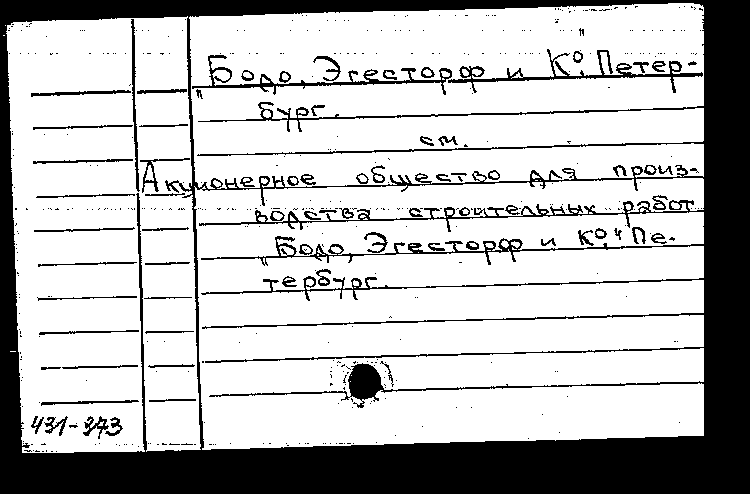 „Бодо, Эгесторф и К°." Петер-
бург.
см.
Акционерное общество для произ-
водства строительных работ
„Бодо, Эгесторф и К°." Пе-
тербург.
431-373